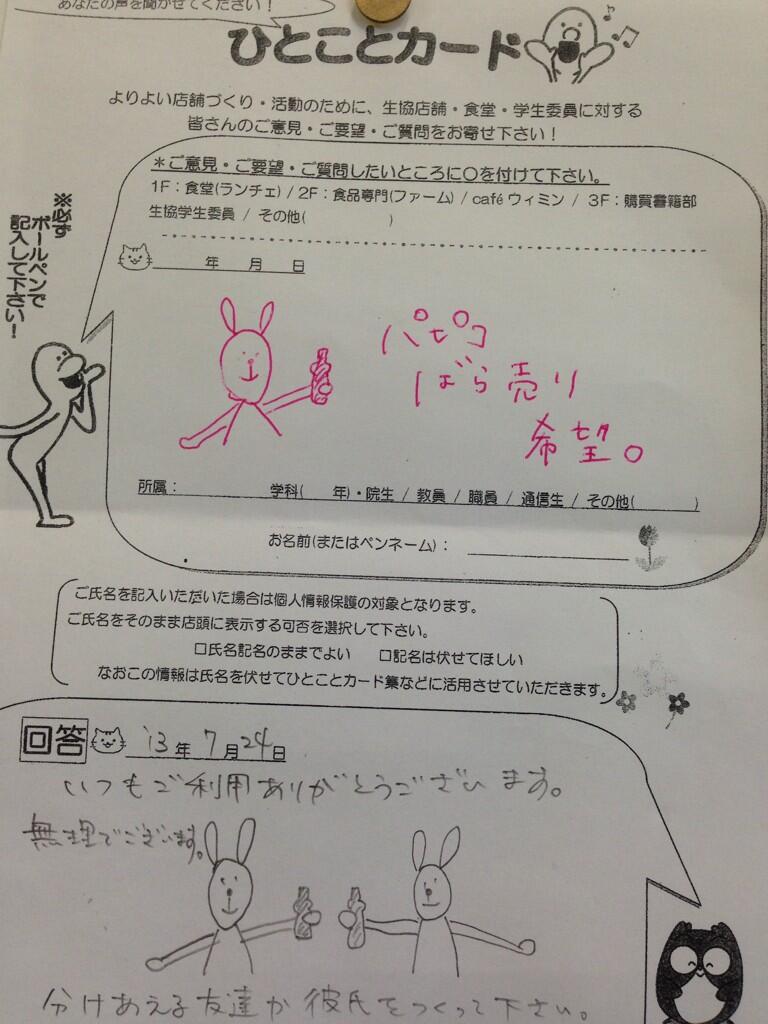 あなたの声を聞かせてください!
ひとことカード
よりよい店舗づくり・活動のために、生協店舗・食堂・学生委員に対する
皆さんのご意見・ご要望・ご質問をお寄せ下さい!
*ご意見・ご要望・ご質問したいところに〇を付けて下さい。
1F:食堂(ランチェ) / 2F:食品専門(ファーム) / café ウィミン / 3F:購買書籍部
生協学生委員 / その他( )
年 月 日
※必ず
ボールペンで
記入して下さい!
パピコ
ばら売り
希望。
所属: 学科( 年)・院生 / 教員 / 職員 / 通信生 / その他( )
お名前(またはペンネーム):
ご氏名を記入いただいた場合は個人情報保護の対象となります。
ご氏名をそのまま店頭に表示する可否を選択して下さい。
□氏名記名のままでよい □記名は伏せてほしい
なおこの情報は氏名を伏せてひとことカード集などに活用させていただきます。
回答 '13年 7月24日
いつもご利用ありがとうございます。
無理でございます。
分けあえる友達か彼氏をつくって下さい。